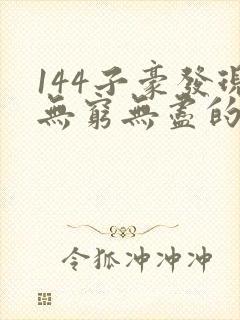 144子豪發現
無窮無盡的
令狐冲冲冲